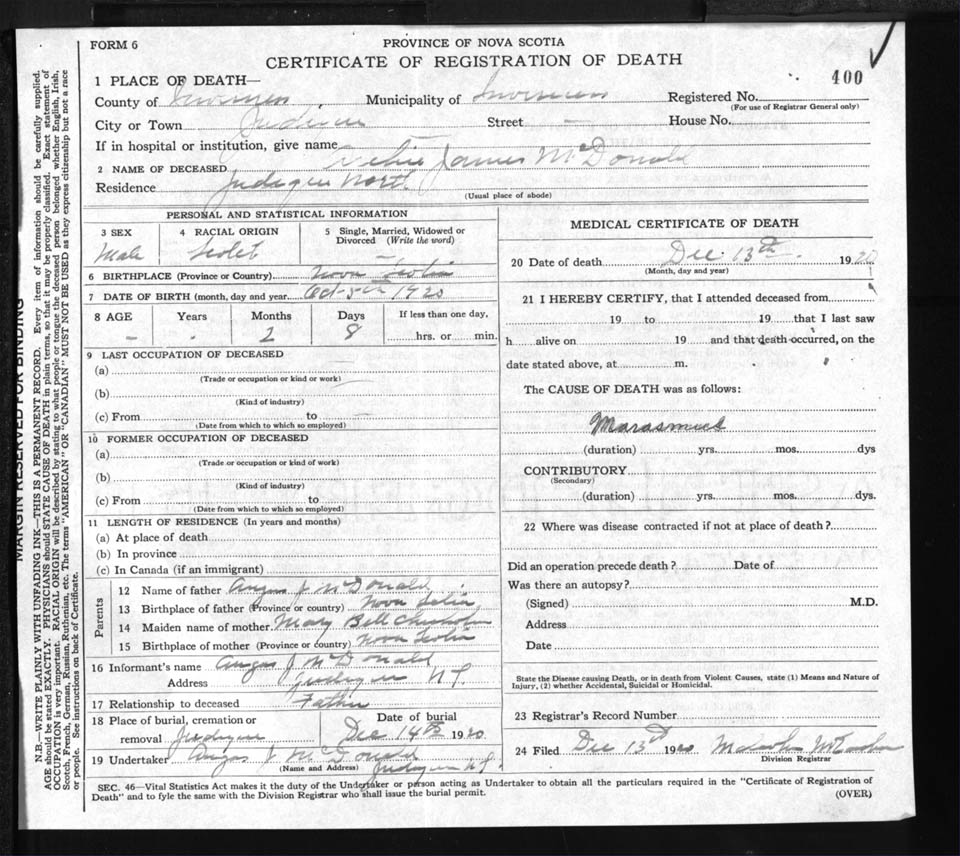 FORM 6
PROVINCE OF NOVA SCOTIA
CERTIFICATE OF REGISTRATION OF DEATH
400
1 PLACE OF DEATH—
County of Inverness Municipality of Inverness Registered No.
(For use of Registrar General only)
City or Town Judique Street — House No.
If in hospital or institution, give name —
2 NAME OF DECEASED James McDonald
Residence Judique North
(Usual place of abode)
PERSONAL AND STATISTICAL INFORMATION
3 SEX 4 RACIAL ORIGIN 5 Single, Married, Widowed or Divorced (Write the word)
Male Scotch —
6 BIRTHPLACE (Province or Country) Nova Scotia
7 DATE OF BIRTH (month, day and year) Oct 5th 1920
8 AGE Years Months Days If less than one day,
— . 2 8 hrs. or min.
9 LAST OCCUPATION OF DECEASED
(a)
(Trade or occupation or kind or work)
(b)
(Kind of industry)
(c) From to —
(Date from which to which so employed)
10 FORMER OCCUPATION OF DECEASED
(a)
(Trade or occupation or kind of work)
(b)
(Kind of industry)
(c) From to
(Date from which to which so employed)
11 LENGTH OF RESIDENCE (In years and months)
(a) At place of death
(b) In province
(c) In Canada (if an immigrant)
Parents
12 Name of father Angus J McDonald
13 Birthplace of father (Province or country) Nova Scotia
14 Maiden name of mother Mary Bell Chisholm
15 Birthplace of mother (Province or country) Nova Scotia
16 Informant's name Angus J McDonald
Address Judique N S.
17 Relationship to deceased Father
18 Place of burial, cremation or removal Judique Date of burial Dec 14th 1920
19 Undertaker Angus J McDonald
(Name and Address) Judique N S.
MEDICAL CERTIFICATE OF DEATH
20 Date of death Dec. 13th 1920
(Month, day and year)
21 I HEREBY CERTIFY, that I attended deceased from
19 to 19 that I last saw
h alive on 19 and that death occurred, on the
date stated above, at m.
The CAUSE OF DEATH was as follows:
Marasmus
(duration) yrs. mos. dys
CONTRIBUTORY
(Secondary)
(duration) yrs. mos. dys.
22 Where was disease contracted if not at place of death?
Did an operation precede death? Date of
Was there an autopsy?
(Signed) M.D.
Address
Date
State the Disease causing Death, or in death from Violent Causes, state (1) Means and Nature of
Injury, (2) whether Accidental, Suicidal or Homicidal.
23 Registrar's Record Number
24 Filed Dec 13th 1920
Division Registrar
SEC. 46—Vital Statistics Act makes it the duty of the Undertaker or person acting as Undertaker to obtain all the particulars required in the "Certificate of Registration of
Death" and to fyle the same with the Division Registrar who shall issue the burial permit.
(OVER)
MARGIN RESERVED FOR BINDING
N.B.—WRITE PLAINLY WITH UNFADING INK—THIS IS A PERMANENT RECORD. Every item of information should be carefully supplied.
AGE should be stated EXACTLY. PHYSICIANS should STATE CAUSE OF DEATH in plain terms, so that it may be properly classified. Exact statement of
OCCUPATION is very important. RACIAL ORIGIN will be described by stating to what people or tongue the deceased person belonged whether English, Irish,
Scotch, French, German, Russian, Ruthenian, etc. The terms "AMERICAN" OR "CANADIAN" MUST NOT BE USED as they express citizenship but not a race
or people. See instructions on back of Certificate.